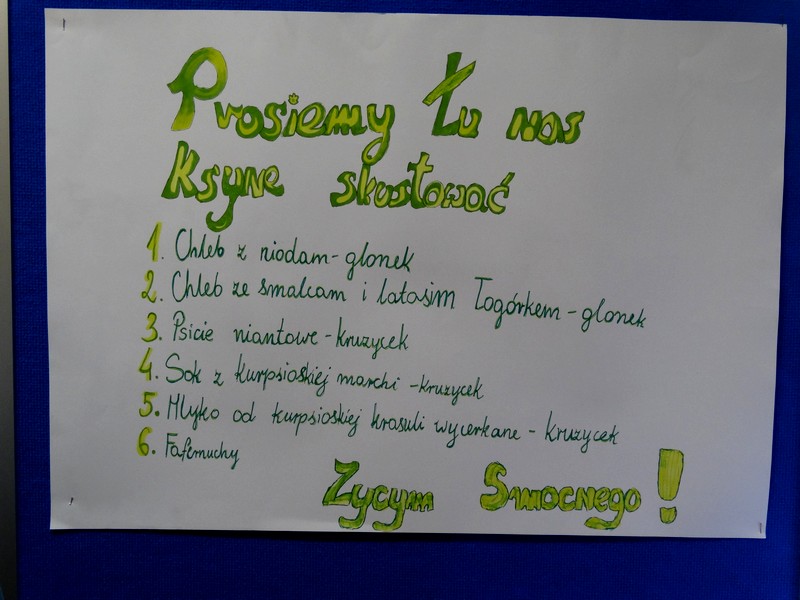 Prosiemy Łu nas
ksyne skustować
1. Chleb z niodam - glonek
2. Chleb ze smalcam i latosim łogórkem - glonek
3. Psicie niantowe - kruzycek
4. Sok z kurpsioskiej marchi - kruzycek
5. Mlyko od kurpsioskiej krasuli wycerkane - kruzycek
6. Fafernuchy
Zycym Samocnego!